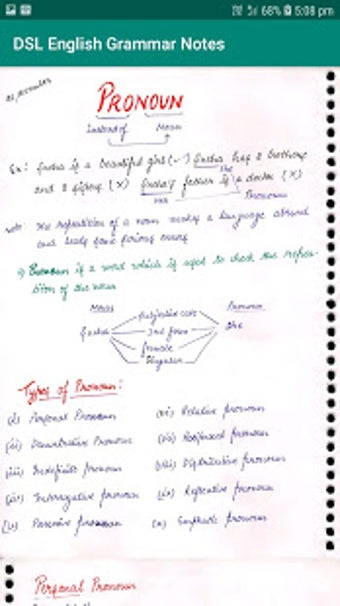 68% 5:08 pm
DSL English Grammar Notes
PRONOUN
Instead of Noun
Ex: is a beautiful girl. (-) has 2 brothers
she
and 2 sisters (X) father is a doctor (X)
Her Pronoun
Note: The repetition of a noun makes a language absurd
and
Pronoun is a word which is used to check the repe-
tition of the noun
Noun Pronoun
Subjective case
3rd form She
female
Singular
Types of Pronoun:
(i) Personal Pronoun (vi) Relative pronoun
(ii) Demonstrative Pronoun (vii) Reciprocal pronoun
(iii) Indefinite pronoun (viii) Distributive pronoun
(iv) Interrogative pronoun (ix) Reflexive pronoun
(v) Possessive pronoun (x) Emphatic pronoun
Personal Pronoun